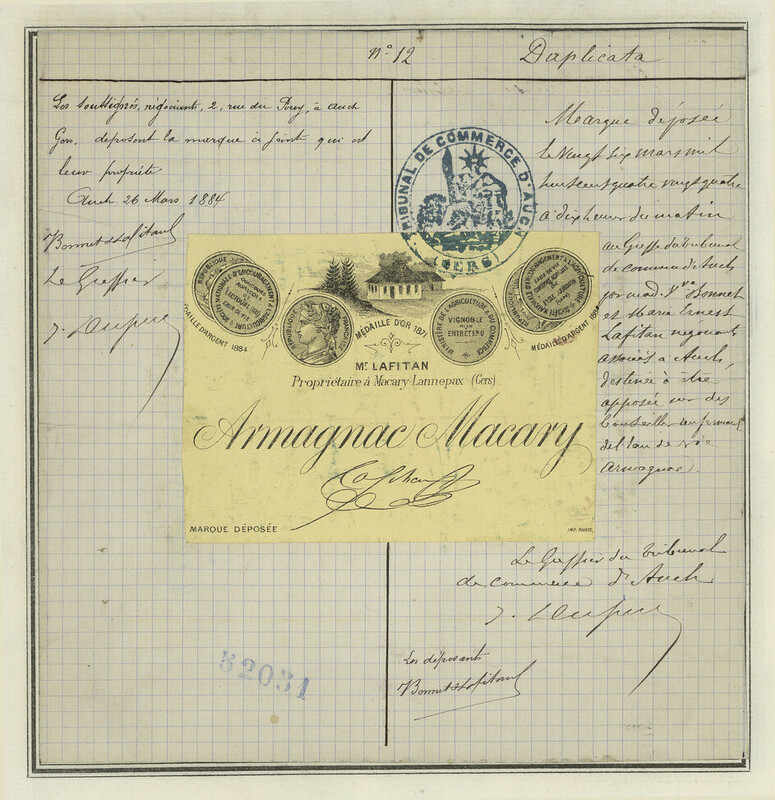 N° 12
Duplicata
Les soussignés, négociants, 2, rue du Pouy, à Auch
Gers, déposent la marque ci jointe qui est
leur propriété
Auch 26 Mars 1884
Bonnet & Lafitan
Le Greffier
J. Dupuy
Marque déposée
le Vingt six mars mil
huit cent quatre vingt quatre
à dix heures du matin
au Greffe du Tribunal
de commerce d'Auch
par mad. Vve Bonnet
et Marie Ernest
Lafitan négociants
associés à Auch,
destinée à être
apposée sur des
bouteilles renfermant
de l'eau de vie
Armagnac.
TRIBUNAL DE COMMERCE D'AUCH
(GERS)
MÉDAILLE D'ARGENT 1884
RÉPUBLIQUE FRANÇAISE
MÉDAILLE D'OR 1871
MINISTÈRE DE L'AGRICULTURE & DU COMMERCE
VIGNOBLE
BIEN
ENTRETENU
MÉDAILLE D'ARGENT
MR LAFITAN
Propriétaire à Macary-Lannepax (Gers)
Armagnac Macary
MARQUE DÉPOSÉE
Le Greffier du Tribunal
de commerce d'Auch
J. Dupuy
Les déposants
Bonnet & Lafitan
52031